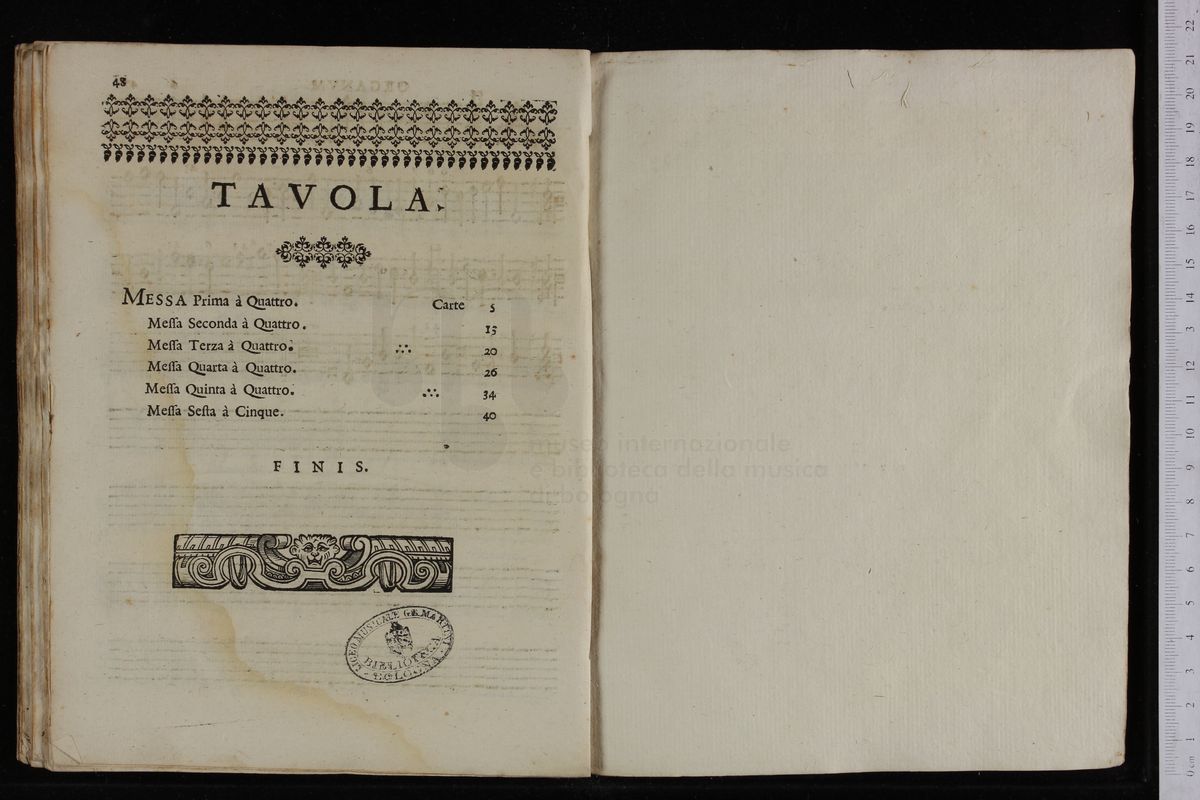 48
TAVOLA.
MESSA Prima à Quattro. Carte 5
Meſſa Seconda à Quattro. 15
Meſſa Terza à Quattro. 20
Meſſa Quarta à Quattro. 26
Meſſa Quinta à Quattro. 34
Meſſa Seſta à Cinque. 40
FINIS.
LICEO MUSICALE G.B. MARTINI
BIBLIOTECA
BOLOGNA
museo internazionale
e biblioteca della musica
di bologna
22
21
20
19
18
17
16
15
14
3
12
11
10
9
8
7
6
5
4
3
2
1
0 cm